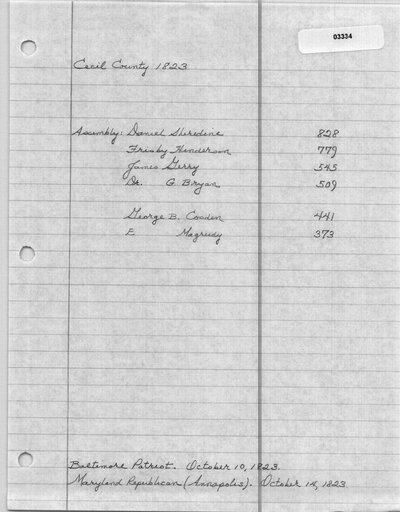 03334
Cecil County 1823
Assembly: Daniel Sheredine 828
Frisby Henderson 779
James Gerry 545
Dr. G. Bryan 509
George B. Cosden 441
E Magredy 373
Baltimore Patriot. October 10, 1823.
Maryland Republican (Annapolis). October 14, 1823